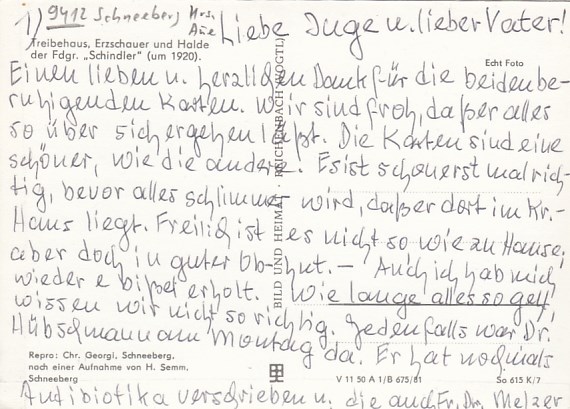 1) 9412 Schneeberg Krs. Aue
Liebe Inge u. lieber Vater!
Treibehaus, Erzschauer und Halde
der Fdgr. „Schindler" (um 1920).
Echt Foto
Einen lieben u. herzlichen Dank für die beiden be-
ruhigenden Karten. Wir sind froh, daß er alles
so über sich ergehen läßt. Die Karten sind eine
schöner, wie die andere. Es ist schon erst mal rich-
tig, bevor alles schlimmer wird, daß er dort im Kr.-
Haus liegt. Freilich ist es nicht so wie zu Hause,
aber doch in guter Ob-Hut. – Auch ich hab mich
wieder e bißel erholt. Wie lange alles so geht
wissen wir nicht so richtig. Jedenfalls war Dr.
Hübschmann am Montag da. Er hat nochmals
Antibiotika verschrieben u. die auch Fr. Dr. Melzer
BILD UND HEIMAT · REICHENBACH (VOGTL)
Repro: Chr. Georgi, Schneeberg,
nach einer Aufnahme von H. Semm,
Schneeberg
V 11 50 A 1/B 675/81
So 615 K/7